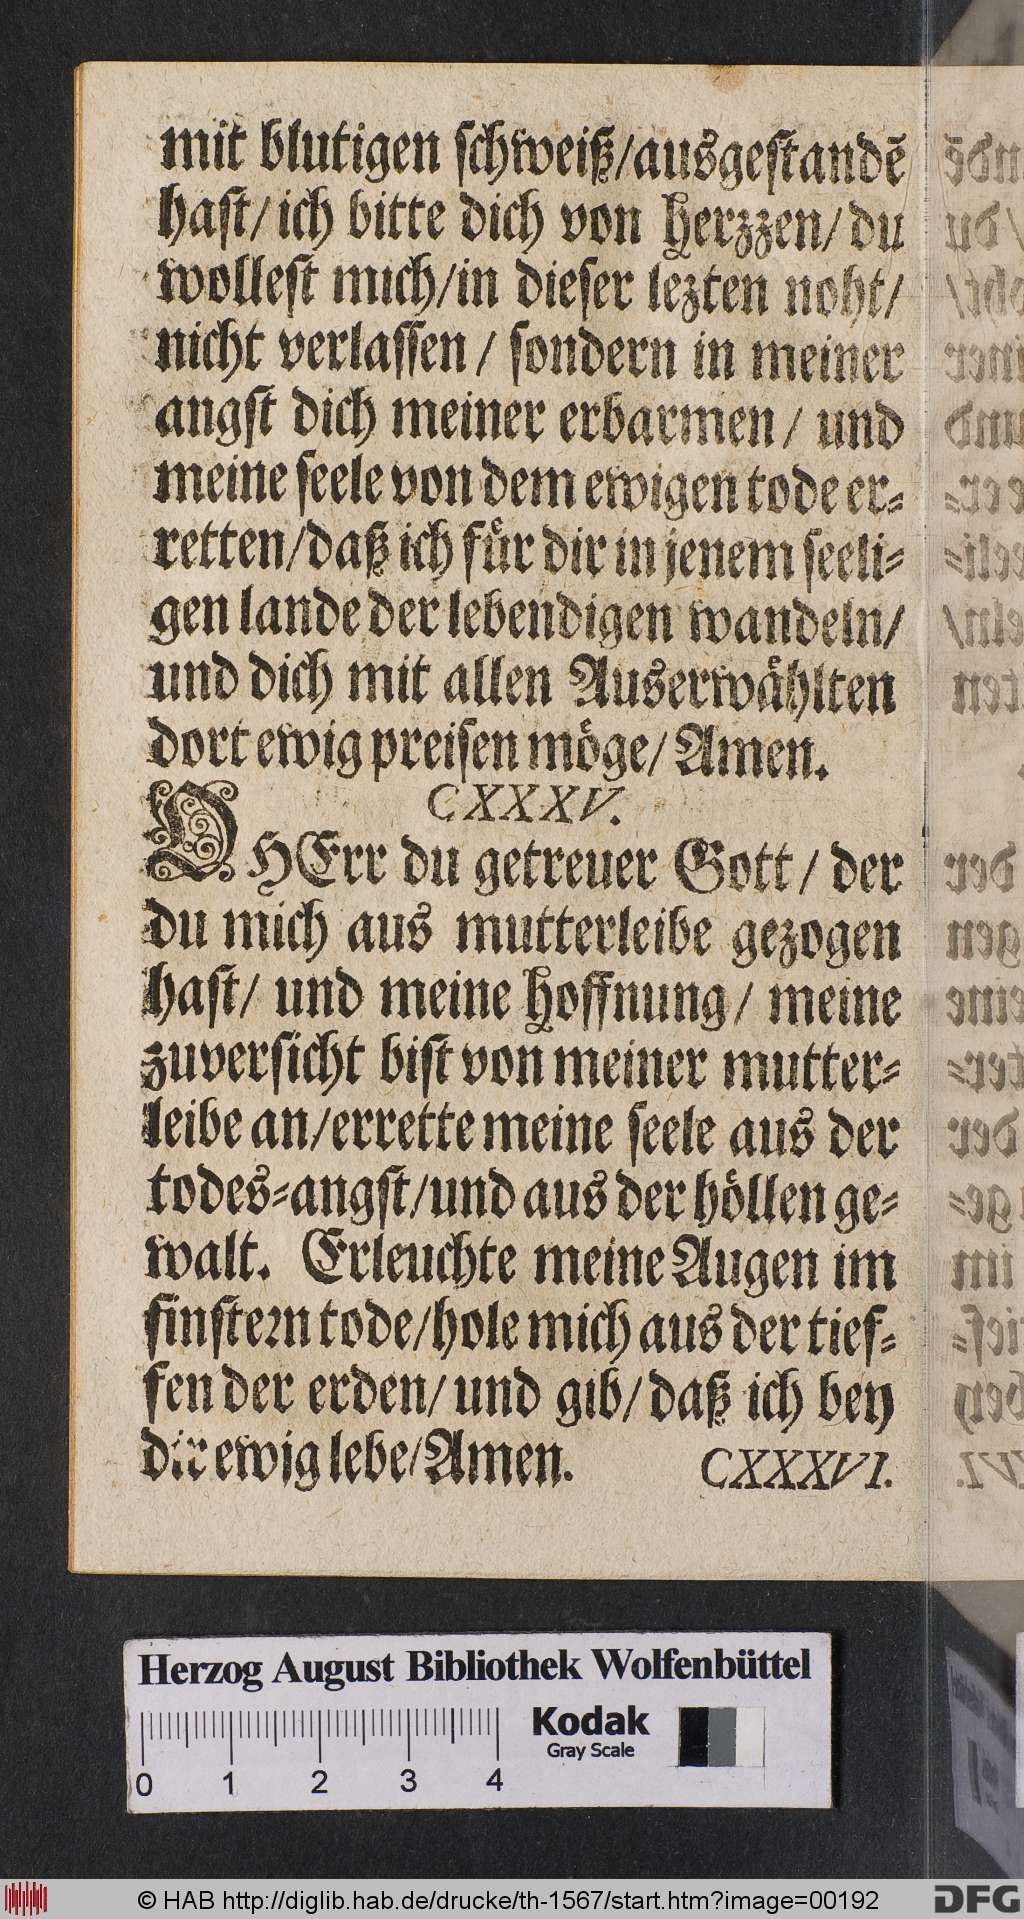 mit blutigen schweiß/ausgestandē
hast/ ich bitte dich von Herzzen/ du
wollest mich/in dieser lezten noht/
nicht verlassen / sondern in meiner
angst dich meiner erbarmen / und
meine seele von dem ewigen tode er-
retten/daß ich für dir in jenem seeli-
gen lande der lebendigen wandeln/
und dich mit allen Auserwählten
dort ewig preisen möge/ Amen.
CXXXV.
O HErr du getreuer Gott / der
du mich aus mutterleibe gezogen
hast/ und meine Hoffnung / meine
zuversicht bist von meiner mutter-
leibe an/errette meine seele aus der
todes-angst/und aus der höllen ge-
walt. Erleuchte meine Augen im
finstern tode/hole mich aus der tief-
fen der erden/ und gib/ daß ich bey
dir ewig lebe/Amen. CXXXVI.
Herzog August Bibliothek Wolfenbüttel
Kodak
Gray Scale
0 1 2 3 4
© HAB http://diglib.hab.de/drucke/th-1567/start.htm?image=00192
DFG